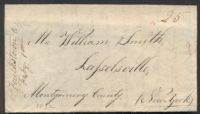 25
Mr William Smith,
Lasselsville,
Montgomery County
(New York)